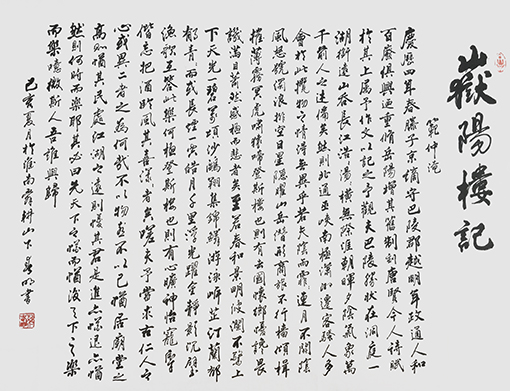 嶽陽樓記
範仲淹
慶曆四年春滕子京謫守巴陵郡越明年政通人和
百廢俱興迺重脩岳陽樓增其舊制刻唐賢今人詩賦
於其上屬予作文以記之予觀夫巴陵勝狀在洞庭一
湖銜遠山吞長江浩浩湯湯橫無際涯朝暉夕陰氣象萬
千前人之述備矣然則北通巫峽南極瀟湘遷客騷人多
會於此攬物之情得無異乎若夫陰雨霏霏連月不開陰
風怒號濁浪排空日星隱曜山岳潛形商旅不行檣傾楫
摧薄暮冥冥虎嘯猿啼登斯樓也則有去國懷鄉憂讒畏
譏滿目蕭然感極而悲者矣至若春和景明波瀾不驚上
下天光一碧萬頃沙鷗翔集錦鱗游泳岸芷汀蘭郁
郁青青而或長煙一空皓月千里浮光躍金靜影沉璧
漁歌互答此樂何極登斯樓也則有心曠神怡寵辱
偕忘把酒臨風其喜洋洋者矣嗟夫予嘗求古仁人之
心或異二者之為何哉不以物喜不以己悲居廟堂之
高則憂其民處江湖之遠則憂其君是進亦憂退亦憂
然則何時而樂耶其必曰先天下之憂而憂後天下之樂
而樂噫微斯人吾誰與歸
己亥夏月於淮南耕山下明書